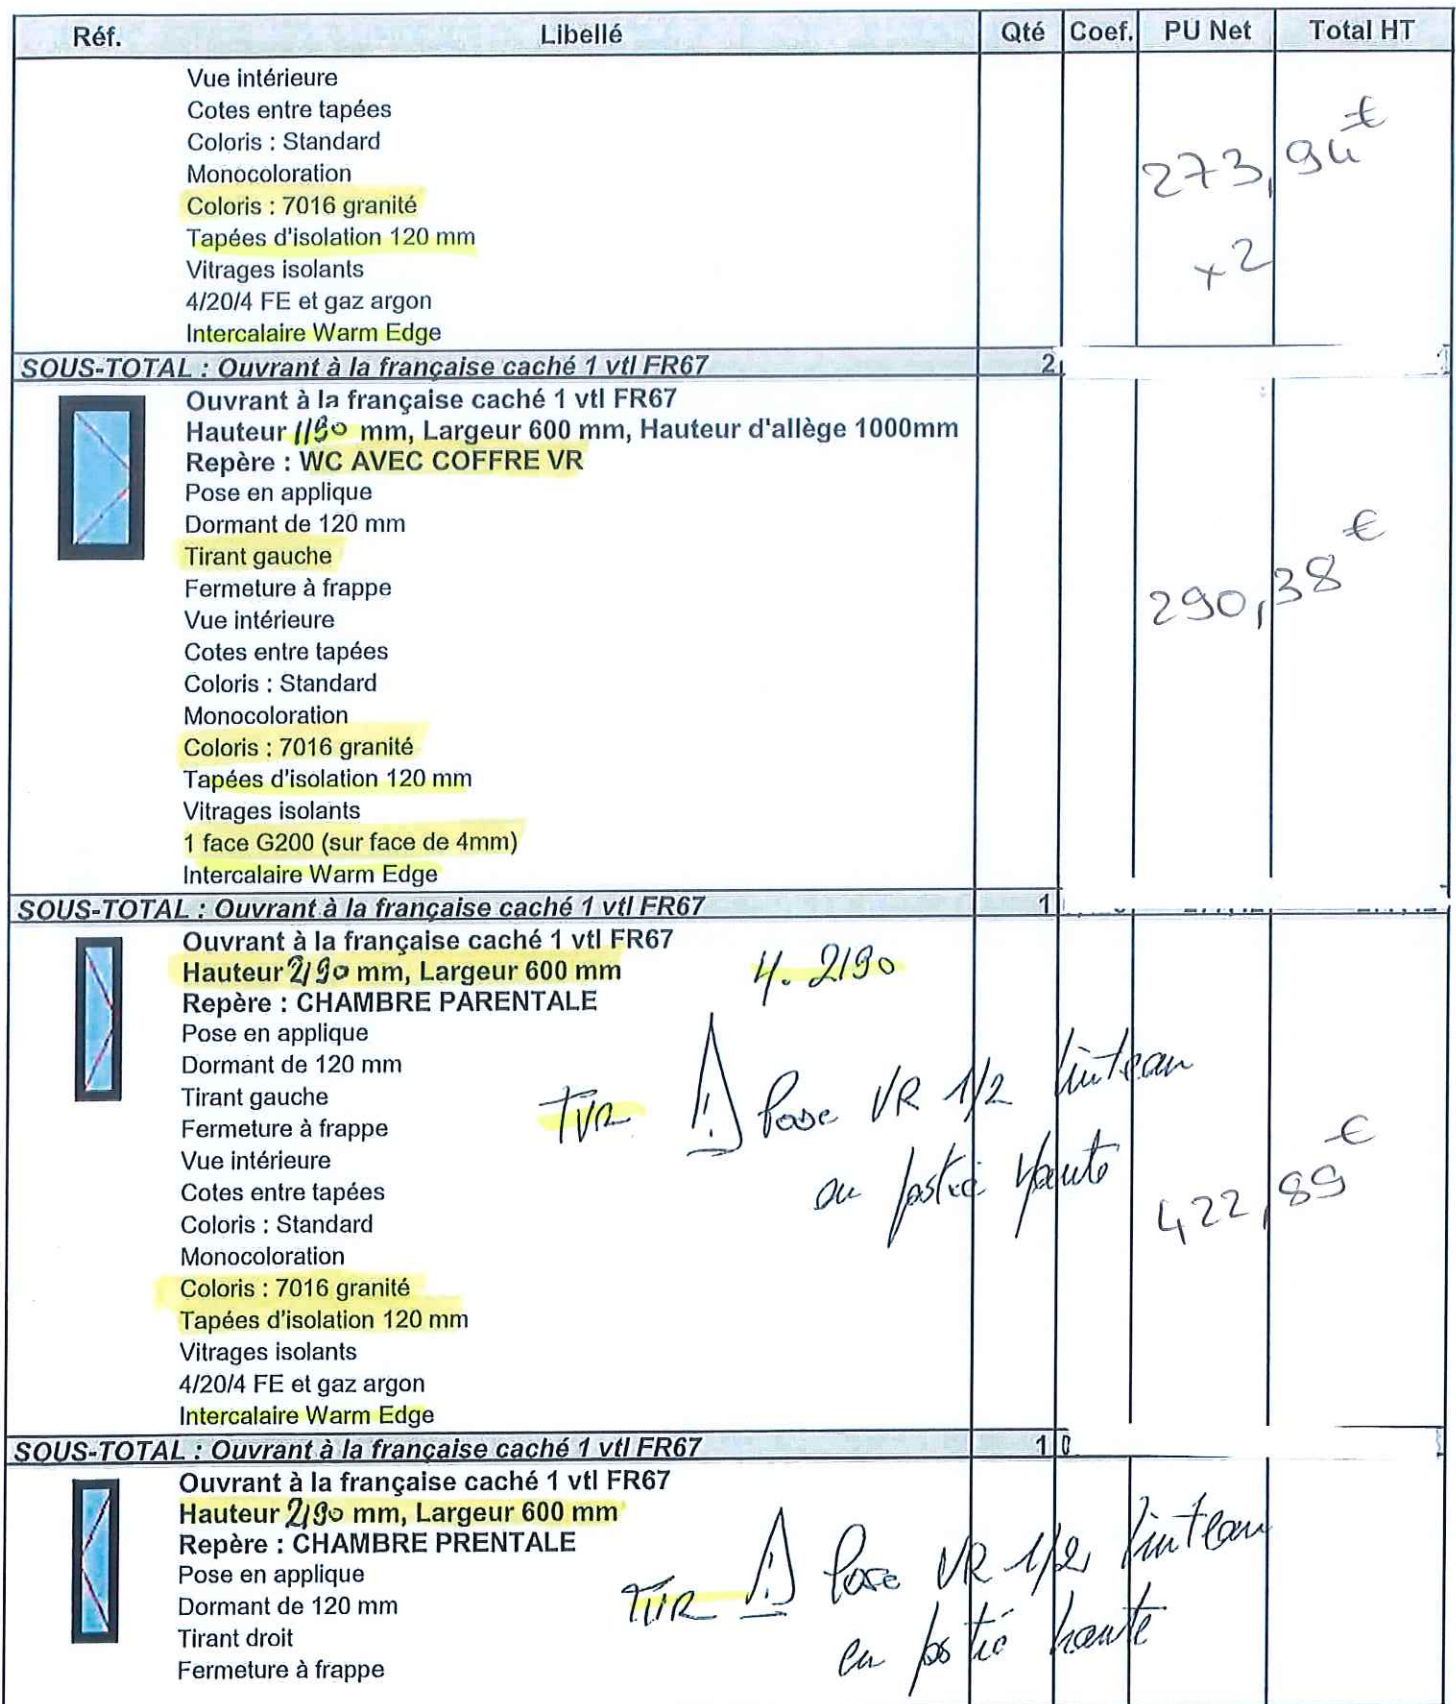 Réf. Libellé Qté Coef. PU Net Total HT
Vue intérieure
Cotes entre tapées
Coloris : Standard
Monocoloration
273,94 €
Coloris : 7016 granité
Tapées d'isolation 120 mm
x2
Vitrages isolants
4/20/4 FE et gaz argon
Intercalaire Warm Edge
SOUS-TOTAL : Ouvrant à la française caché 1 vtl FR67 2
Ouvrant à la française caché 1 vtl FR67
Hauteur 1190 mm, Largeur 600 mm, Hauteur d'allège 1000mm
Repère : WC AVEC COFFRE VR
Pose en applique
Dormant de 120 mm
Tirant gauche
Fermeture à frappe
290,38 €
Vue intérieure
Cotes entre tapées
Coloris : Standard
Monocoloration
Coloris : 7016 granité
Tapées d'isolation 120 mm
Vitrages isolants
1 face G200 (sur face de 4mm)
Intercalaire Warm Edge
SOUS-TOTAL : Ouvrant à la française caché 1 vtl FR67 1
Ouvrant à la française caché 1 vtl FR67
Hauteur 2190 mm, Largeur 600 mm H. 2190
Repère : CHAMBRE PARENTALE
Pose en applique
Dormant de 120 mm
Tirant gauche
TVR ! Pose VR 1/2 linteau
Fermeture à frappe
Vue intérieure
Cotes entre tapées
haute
422,89 €
Coloris : Standard
Monocoloration
Coloris : 7016 granité
Tapées d'isolation 120 mm
Vitrages isolants
4/20/4 FE et gaz argon
Intercalaire Warm Edge
SOUS-TOTAL : Ouvrant à la française caché 1 vtl FR67 1
Ouvrant à la française caché 1 vtl FR67
Hauteur 2190 mm, Largeur 600 mm
Repère : CHAMBRE PRENTALE
Pose en applique
TVR ! Pose VR 1/2 linteau
Dormant de 120 mm
Tirant droit
en haute
Fermeture à frappe